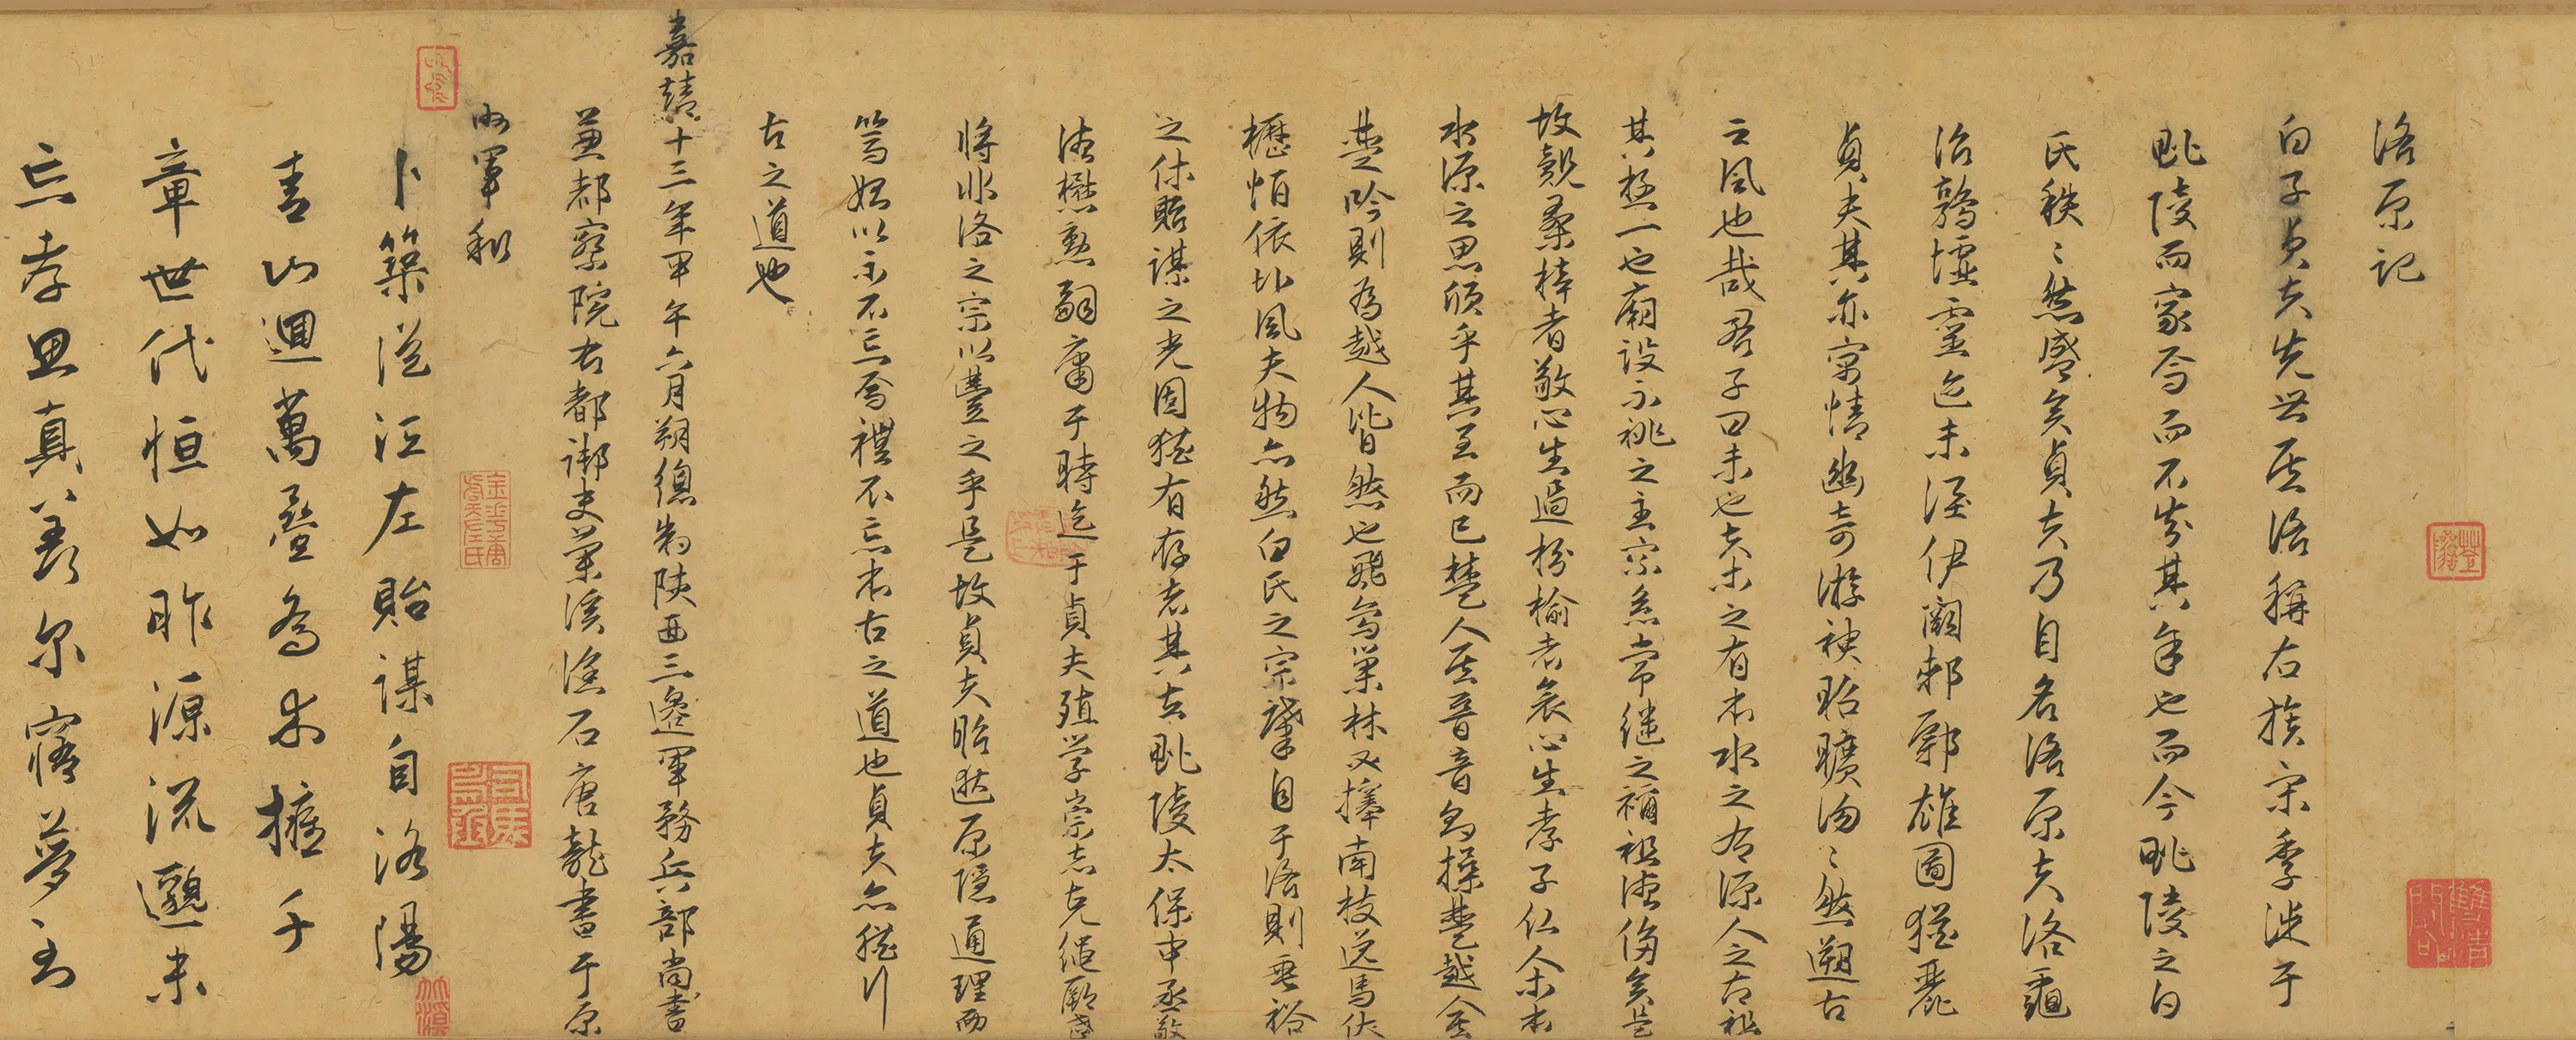 洛原記
白子貞夫先世居洛稱右族宋季徙于
毗陵而家焉而不知其年也而今毗陵之白
氏秩〻然盛矣貞夫乃自名洛原夫洛龜
治鶉墟靈迄未湮伊闕郟鄏雄圖猶麗
貞夫其亦寓情幽奇游袂昭曠汤〻然遡古
之風也哉君子曰未也夫木之有本水之有源人之有祖
其極一也廟設不祧之主宗系常繼之禰祖德侈矣是
故覩桑梓者敬心生過枌榆者哀心生孝子仁人木本
水源之思頎乎其至而已楚人居晉音為操楚越舍
楚吟則為越人皆然也飛鳥巢林必擇南枝逸馬伏
櫪悄依北風夫物亦然白氏之宗肇自于洛則垂裕
之休貽謀之光固猶有存者其去毗陵太保中丞敬
德懋勲嗣庸于時迄于貞夫殖学崇志克繩厥
將非洛之宗以豐之乎是故貞夫貽遊原隱通理而
篤始以示不忘焉禮不忘本古之道也貞夫亦猶行
古之道也
嘉靖十三年甲午六月朔總制陝西三邊軍務兵部尚書
兼都察院右都御史蘭溪漁石唐龍書于原
州軍秋
卜築從江左貽謀自洛陽
青山迴萬疊喬木擁千
章世代恒如昨源流邈未
忘孝思真羨尔寤夢〻到